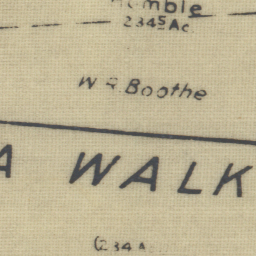 Humble
234⁵ Ac.
W R Boothe
A WALK
(234 A